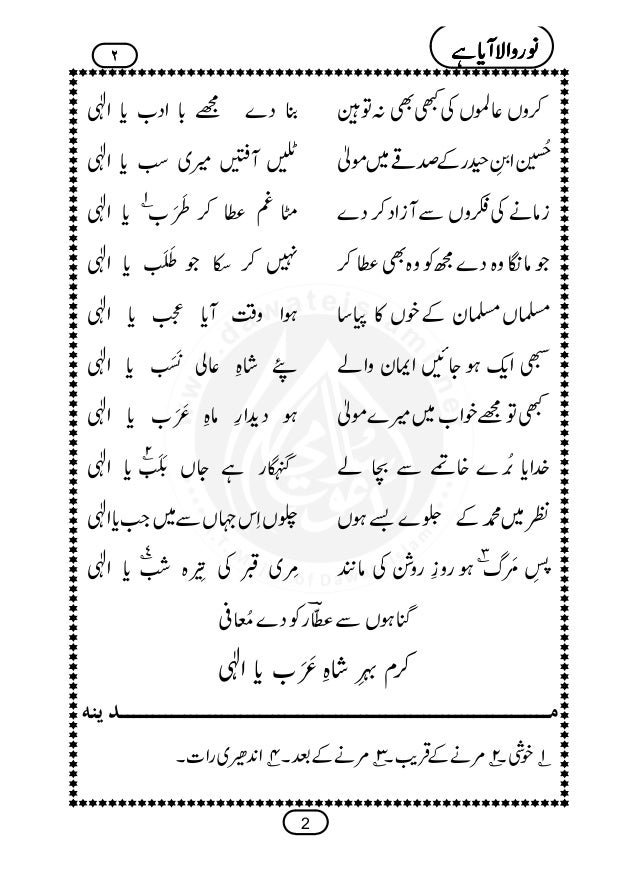 نور والا آیا ہے ۲
کروں عالموں کی کبھی بھی نہ توہین بنا دے مجھے با ادب یا الٰہی
حُسین ابنِ حیدر کے صدقے میں مولیٰ ٹلیں آفتیں میری سب یا الٰہی
زمانے کی فکروں سے آزاد کر دے مٹا غم عطا کر طَرَب ۱؎ یا الٰہی
جو مانگا وہ دے مجھ کو وہ بھی عطا کر نہیں کر سکا جو طَلَب یا الٰہی
مسلماں مسلمان کے خوں کا پیاسا ہوا وقت آیا عجب یا الٰہی
سبھی ایک ہو جائیں ایمان والے پئے شاہِ عالی نَسَب یا الٰہی
کبھی تو مجھے خواب میں میرے مولیٰ ہو دیدارِ ماہِ عَرَب یا الٰہی
خدایا بُرے خاتمے سے بچا لے گنہگار ہے جاں بَلَب ۲؎ یا الٰہی
نظر میں محمد کے جلوے بسے ہوں چلوں اِس جہاں سے میں جب یا الٰہی
پسِ مَرگ ۳؎ ہو روزِ روشن کی مانند مِری قبر کی تِیرہ شب ۴؎ یا الٰہی
گناہوں سے عطّارؔ کو دے مُعافی
کرم بہرِ شاہِ عَرَب یا الٰہی
مـــــــــدینہ
۱؎ خوشی۔ ۲؎ مرنے کے قریب۔ ۳؎ مرنے کے بعد۔ ۴؎ اندھیری رات۔
2